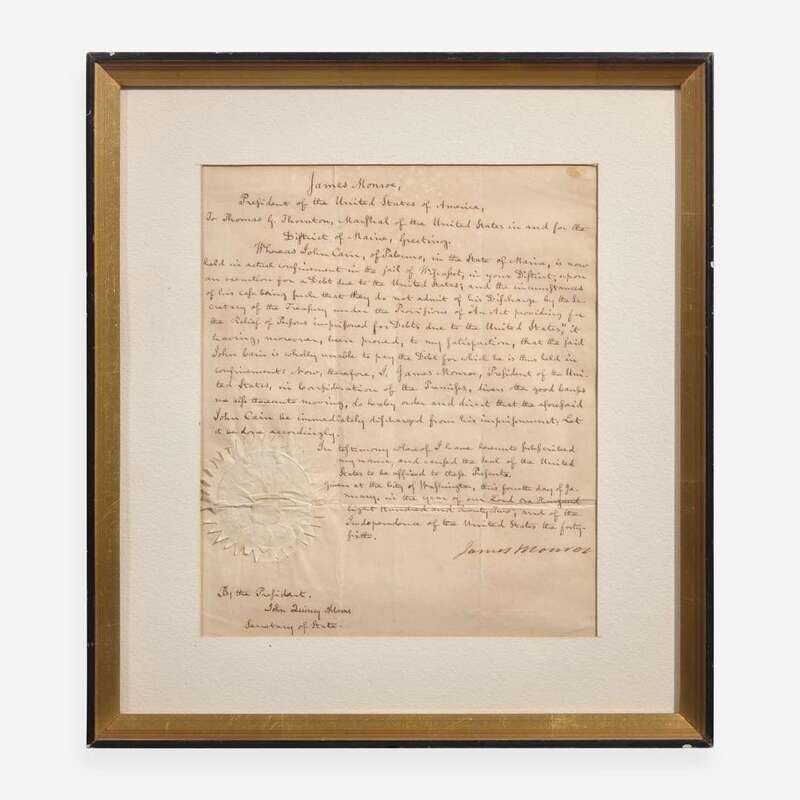 James Monroe,
President of the United States of America,
To Thomas G. Thornton, Marshal of the United States in and for the
District of Maine, Greeting.
Whereas John Cain, of Palermo, in the State of Maine, is now
held in actual confinement in the jail of Wiscasset, in your District, upon
an execution for a Debt due to the United States; and the circumstances
of his case being such that they do not admit of his Discharge by the Se-
cretary of the Treasury under the Provisions of An Act providing for
the Relief of Persons imprisoned for Debts due to the United States," it
having, moreover, been proved, to my satisfaction, that the said
John Cain is wholly unable to pay the Debt for which he is thus held in
confinement: Now, therefore, I, James Monroe, President of the Uni-
ted States, in consideration of the Premises, divers other good causes
me thereunto moving, do hereby order and direct that the aforesaid
John Cain be immediately discharged from his imprisonment. Let
it be done accordingly.
In testimony whereof I have hereunto subscribed
my name, and caused the seal of the United
States to be affixed to these Presents.
Given at the City of Washington, this fourth day of Ja-
nuary, in the year of our Lord one thousand
eight Hundred and twenty two; and of the
Independence of the United States the forty-
sixth.
James Monroe
By the President.
John Quincy Adams
Secretary of State.